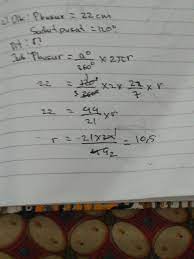 Dik : Pbusur = 22 cm
Sudut pusat = 120°
Dit : r?
Jwb : Pbusur = a°/360° x 2πr
22 = 120°/360° x 2 x 22/7 x r
22 = 44/21 x r
r = 21 x 22/44 2 = 10,5